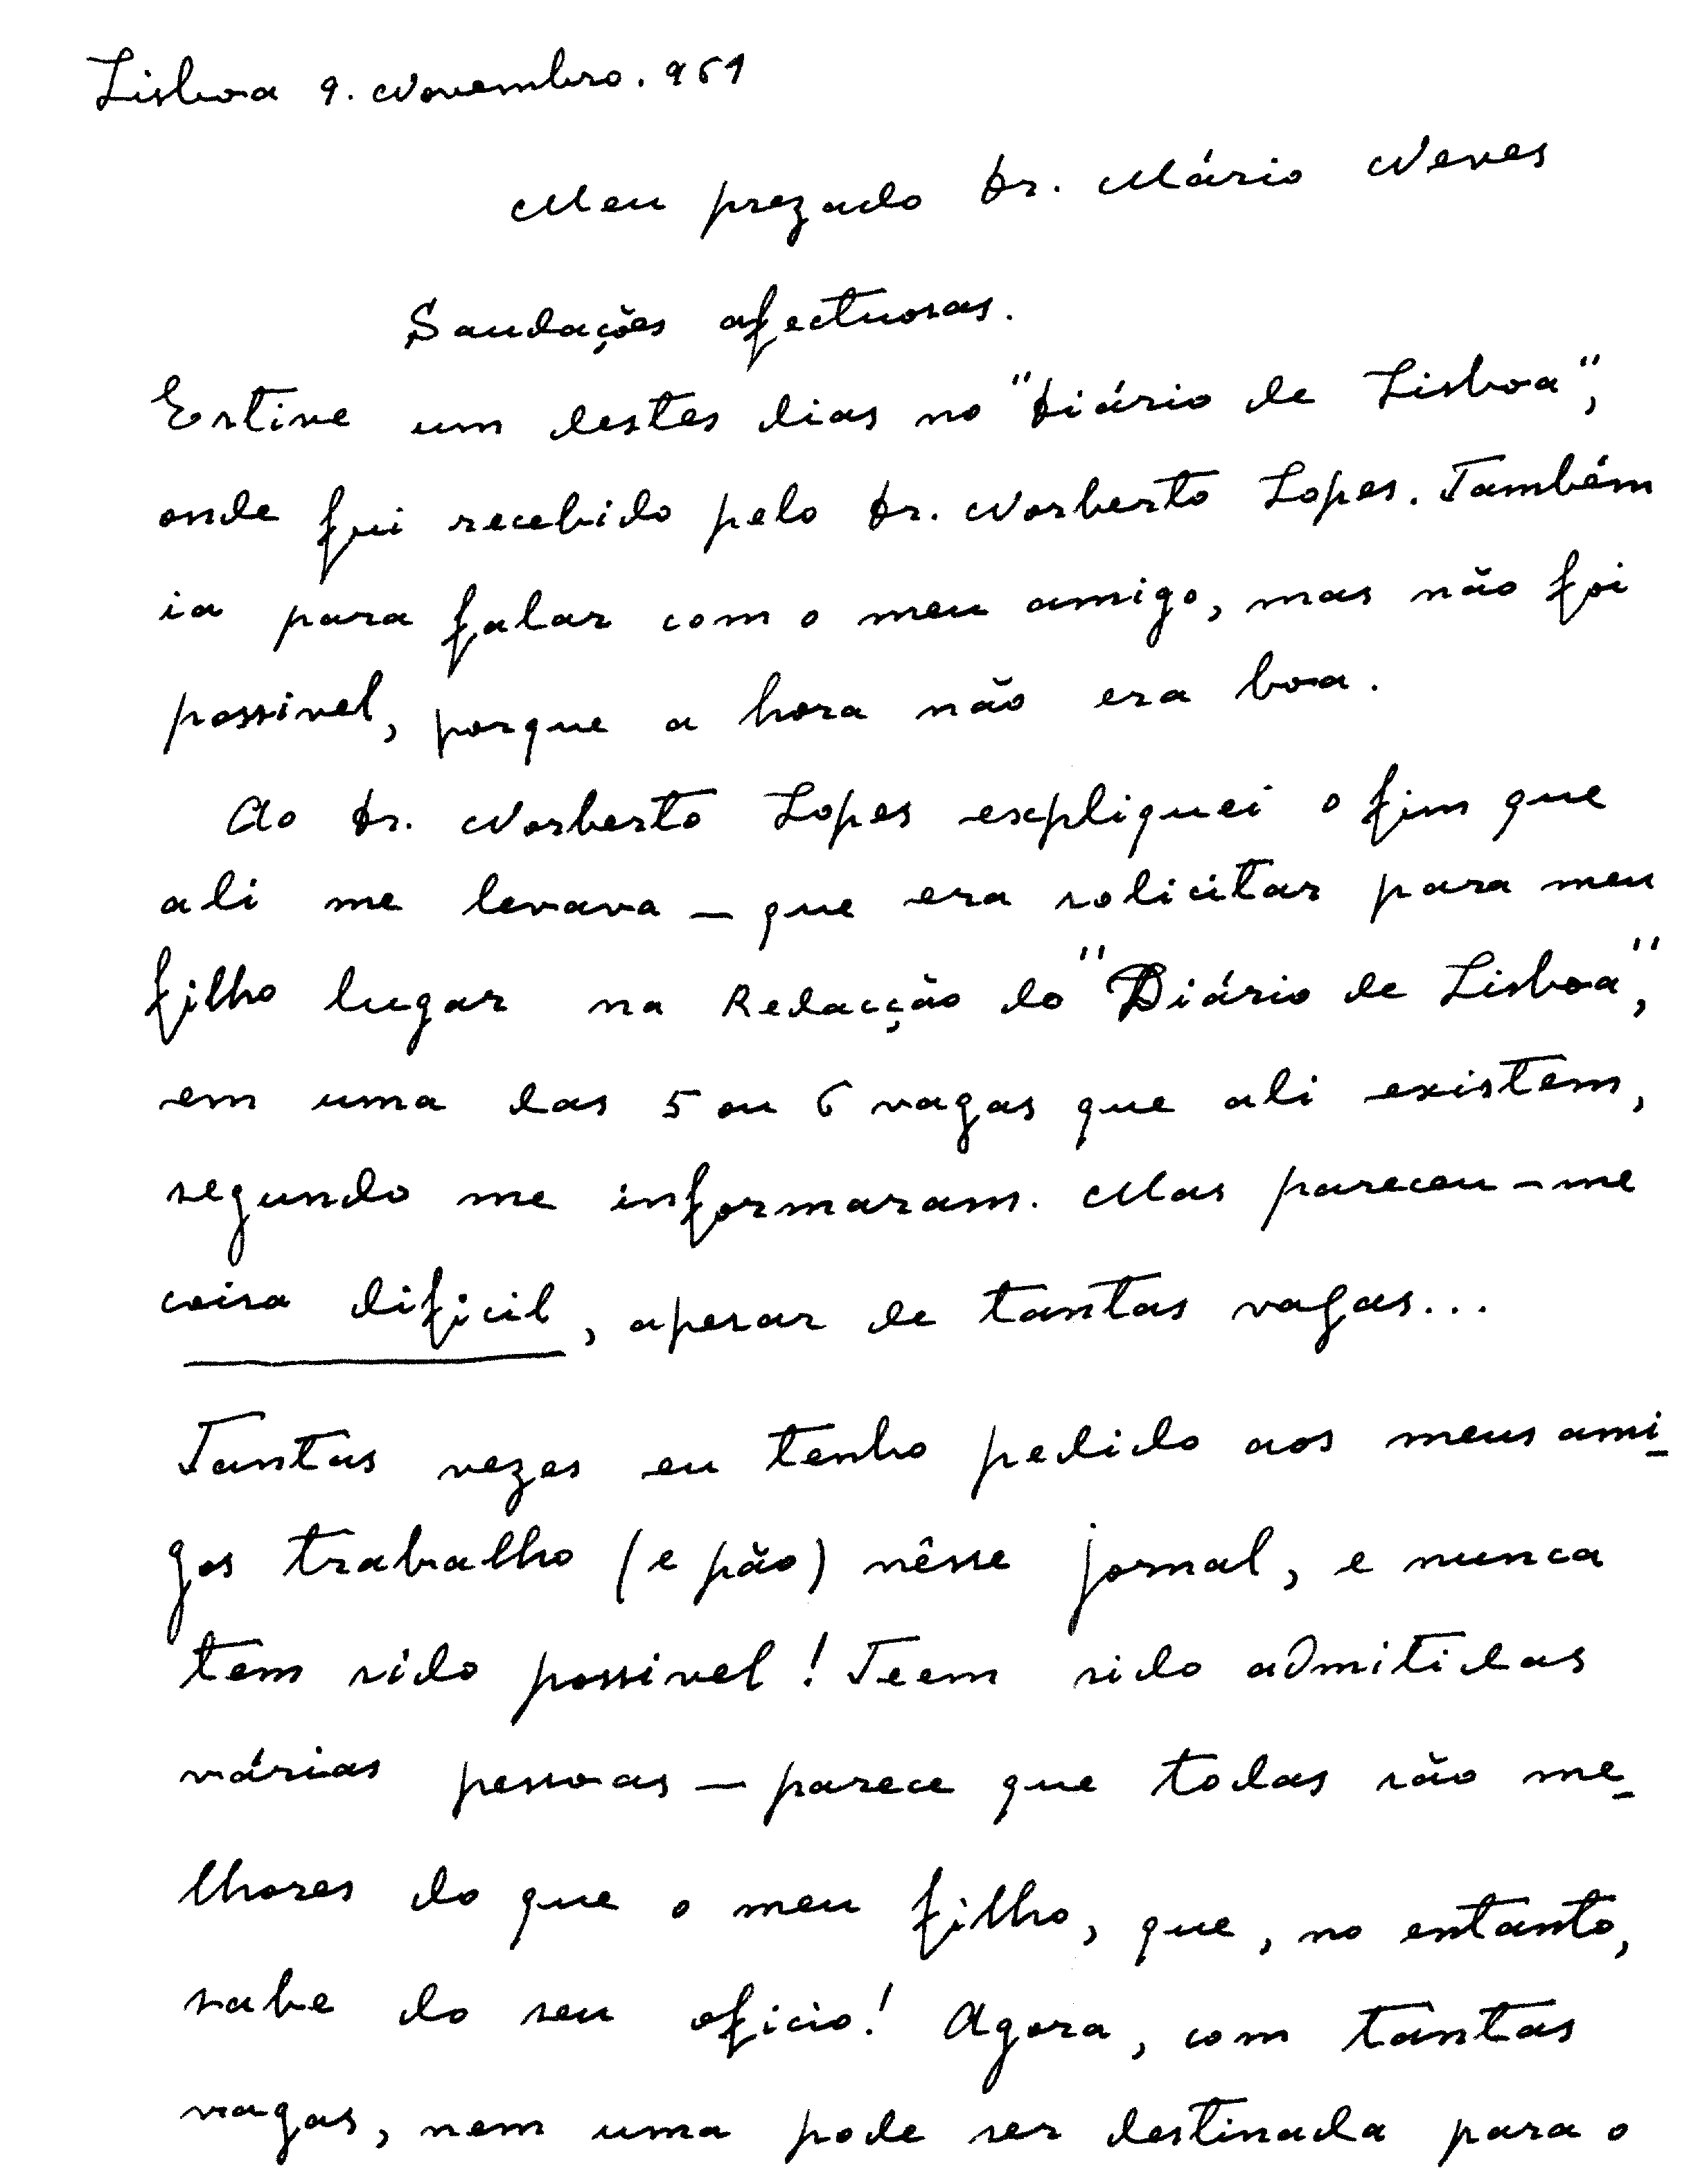 Lisboa 9. Novembro. 961
Meu prezado Dr. Mário Neves
Saudações afectuosas.
Estive um destes dias no "Diário de Lisboa",
onde fui recebido pelo Dr. Norberto Lopes. Também
ia para falar com o meu amigo, mas não foi
possivel, porque a hora não era boa.
Ao Dr. Norberto Lopes expliquei o fim que
ali me levava — que era solicitar para meu
filho lugar na Redacção do "Diário de Lisboa",
em uma das 5 ou 6 vagas que ali existem,
segundo me informaram. Mas pareceu-me
coisa dificil, apesar de tantas vagas...
Tantas vezes eu tenho pedido aos meus ami-
gos trabalho (e pão) nêsse jornal, e nunca
tem sido possivel! Teem sido admitidas
várias pessoas — parece que todas são me-
lhores do que o meu filho, que, no entanto,
sabe do seu oficio! Agora, com tantas
vagas, nem uma pode ser destinada para o